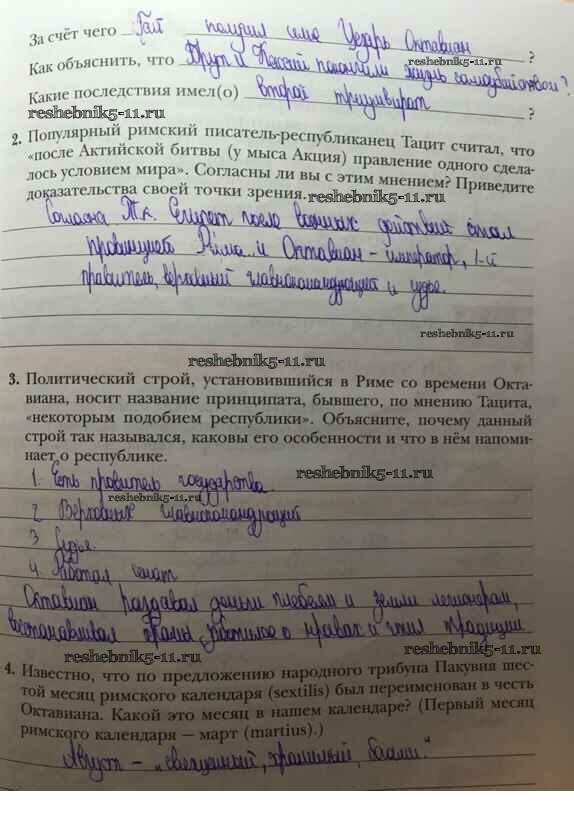 За счёт чего Гай получил имя Цезарь Октавиан ?
reshebnik5-11.ru
Как объяснить, что Брут и Кассий покончили жизнь самоубийством ?
Какие последствия имел(о) второй триумвират ?
reshebnik5-11.ru
2. Популярный римский писатель-республиканец Тацит считал, что
«после Актийской битвы (у мыса Акция) правление одного сдела-
лось условием мира». Согласны ли вы с этим мнением? Приведите
доказательства своей точки зрения.
reshebnik5-11.ru
Согласна т.к. Египет после военных действий стал
провинцией Рима и Октавиан - император, 1-й
правитель, верховный главнокомандующий и судья.
reshebnik5-11.ru
reshebnik5-11.ru
3. Политический строй, установившийся в Риме со времени Окта-
виана, носит название принципата, бывшего, по мнению Тацита,
«некоторым подобием республики». Объясните, почему данный
строй так назывался, каковы его особенности и что в нём напоми-
нает о республике.
1. Есть правитель государства.
reshebnik5-11.ru
reshebnik5-11.ru
2 Верховных главнокомандующий
3 Судья.
4. Работал сенат
Октавиан раздавал деньги плебеям и земли легионерам,
восстанавливал храмы, заботился о нравах и чтил традиции
reshebnik5-11.ru
reshebnik5-11.ru
4. Известно, что по предложению народного трибуна Пакувия шес-
той месяц римского календаря (sextilis) был переименован в честь
Октавиана. Какой это месяц в нашем календаре? (Первый месяц
римского календаря — март (martius).)
reshebnik5-11.ru
Август - "священный, хранимый, богами."